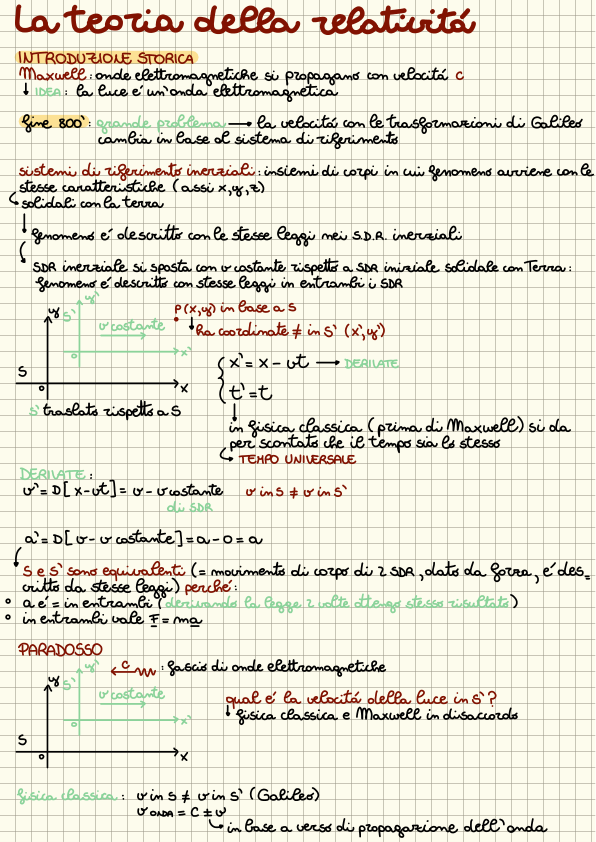 La teoria della relatività
INTRODUZIONE STORICA
Maxwell: onde elettromagnetiche si propagano con velocità c
↓ IDEA: la luce é un'onda elettromagnetica
fine 800': grande problema → la velocità con le trasformazioni di Galileo
cambia in base al sistema di riferimento
sistemi di riferimento inerziali: insiemi di corpi in cui fenomeno avviene con le
stesse caratteristiche (assi x,y,z)
solidali con la terra
fenomeno é descritto con le stesse leggi nei S.D.R. inerziali
SDR inerziale si sposta con v costante rispetto a SDR iniziale solidale con Terra:
fenomeno é descritto con stesse leggi in entrambi i SDR
y S' y' v costante x' S o x
P(x,y) in base a S
↓ ha coordinate ≠ in S' (x',y')
x' = x - vt → DERIVATE
t' = t
S' traslato rispetto a S
in fisica classica (prima di Maxwell) si da
per scontato che il tempo sia lo stesso
TEMPO UNIVERSALE
DERIVATE:
v' = D[x-vt] = v - v costante v in S ≠ v in S'
di SDR
a' = D[v - v costante] = a - 0 = a
S e S' sono equivalenti (= movimento di corpo di 2 SDR, dato da forza, é des=
critto da stesse leggi) perché:
° a é = in entrambi (derivando la legge 2 volte ottengo stesso risultato)
° in entrambi vale F = ma
PARADOSSO
c : fascio di onde elettromagnetiche
y S' y' v costante x' S o x
qual é la velocità della luce in S'?
↓ fisica classica e Maxwell in disaccordo
fisica classica: v in S ≠ v in S' (Galileo)
v ONDA = c ± v
in base a verso di propagazione dell'onda